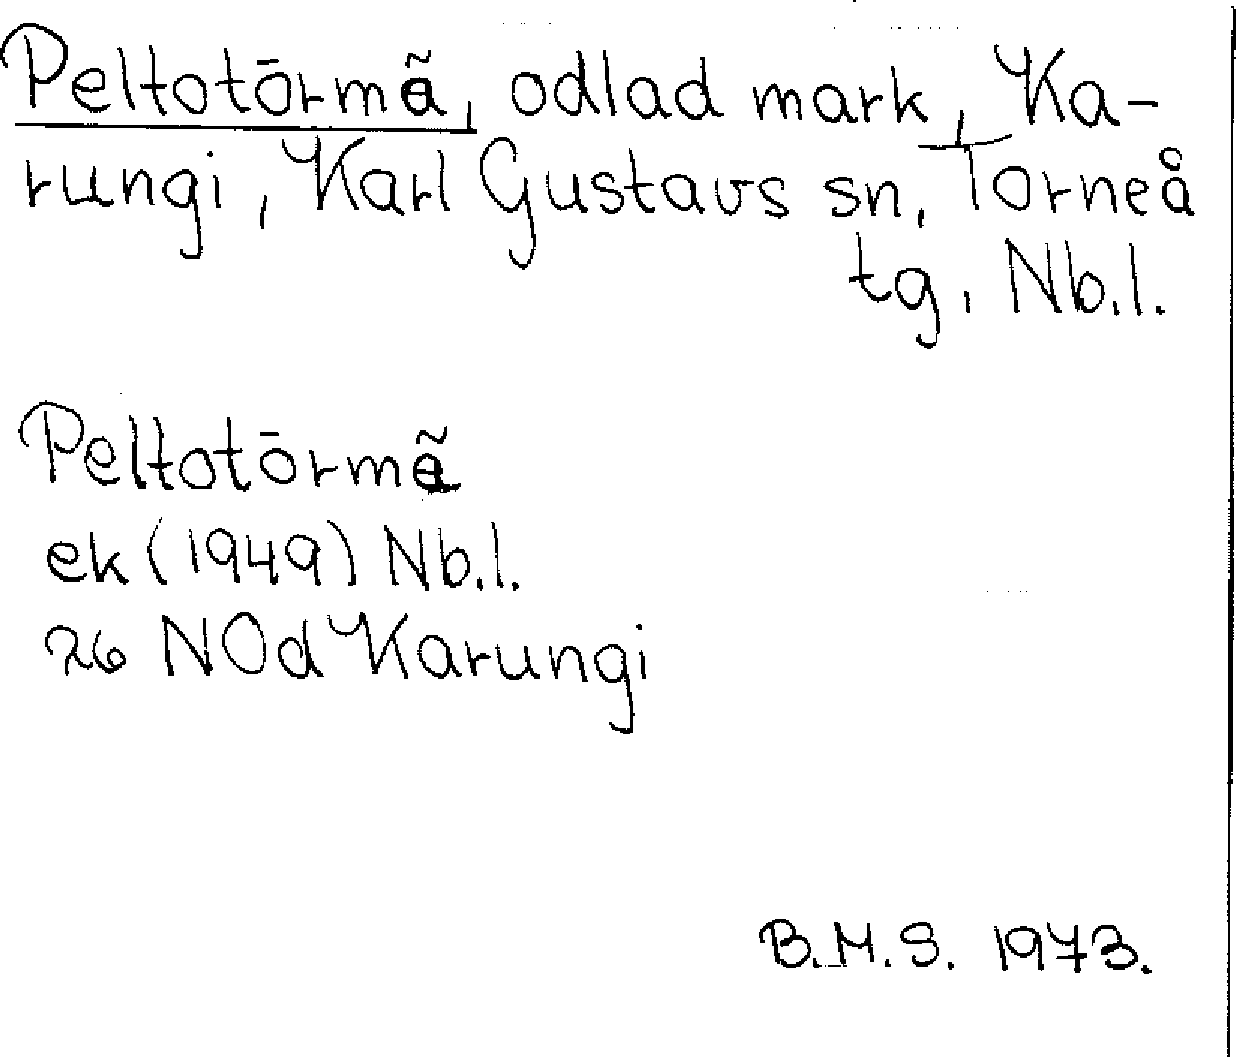 Peltotōrmã, odlad mark, Ka-
rungi, Karl Gustavs sn, Torneå
tg, Nb.l.
Peltotōrmã
ek (1949) Nb.l.
26 NOd Karungi
B.M.S. 1973.